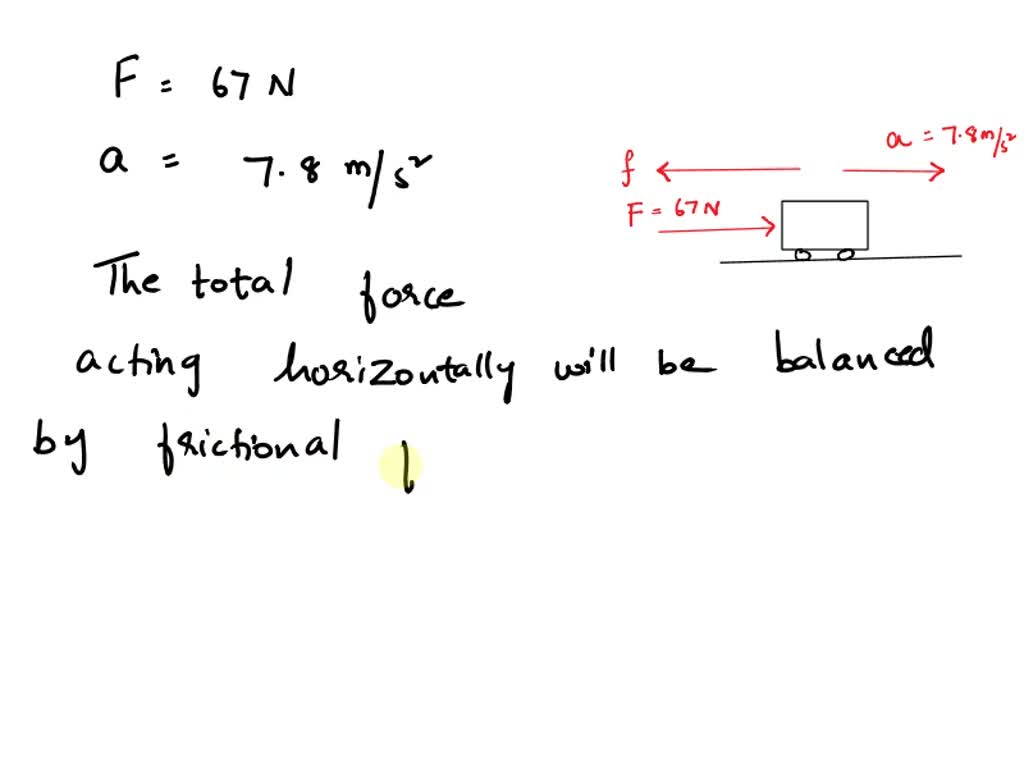 F = 67 N
a = 7.8 m/s²
a = 7.8 m/s²
f
F = 67 N
The total force
acting horizontally will be balanced
by frictional